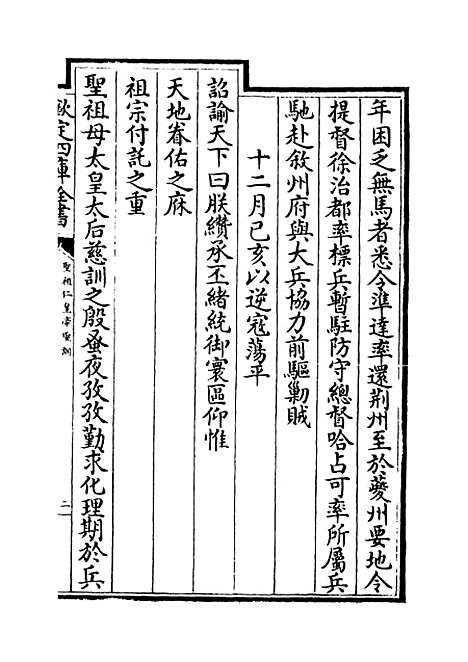 年困乏無馬者悉令準達率還荆州至於夔州要地令
提督徐治都率標兵暫駐防守總督哈占可率所屬兵
馳赴敘州府與大兵協力前驅剿賊
十二月己亥以逆寇蕩平
詔諭天下曰朕纘承丕緒統御寰區仰惟
天地眷佑之庥
祖宗付託之重
聖祖母太皇太后慈訓之殷蚤夜孜孜勤求化理期於兵
欽定四庫全書
聖祖仁皇帝聖訓
二